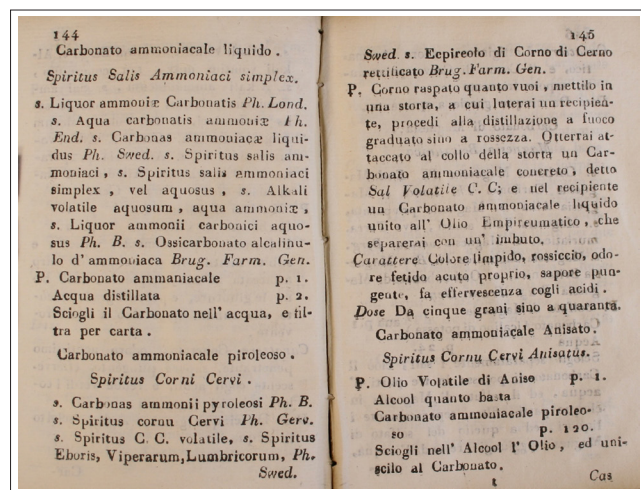 144
Carbonato ammoniacale liquido .
Spiritus Salis Ammoniaci simplex.
s. Liquor ammoniæ Carbonatis Ph. Lond.
s. Aqua carbonatis ammoniæ Ph.
End. s. Carbonas ammoniacæ liqui-
dus Ph. Swed. s. Spiritus salis am-
moniaci , s. Spiritus salis ammoniaci
simplex , vel aquosus , s. Alkali
volatile aquosum , aqua ammoniæ ,
s. Liquor ammonii carbonici aquo-
sus Ph. B. s. Ossicarbonato alcalinu-
lo d' ammoniaca Brug. Farm. Gen.
P. Carbonato ammaniacale p. 1.
Acqua distillata p. 2.
Sciogli il Carbonato nell' acqua, e fil-
tra per carta .
Carbonato ammoniacale piroleoso .
Spiritus Corni Cervi .
s. Carbonas ammonii pyroleosi Ph. B.
s. Spiritus cornu Cervi Ph. Gerv.
s. Spiritus C. C. volatile, s. Spiritus
Eboris, Viperarum, Lumbricorum, Ph.
Swed.
145
Swed. s. Ecpireolo di Corno di Cerno
rettificato Brug. Farm. Gen.
P. Corno raspato quanto vuoi , mettilo in
una storta, a cui luterai un recipien-
te, procedi alla distillazione a fuoco
graduato sino a rossezza. Otterrai at-
taccato al collo della storta un Car-
bonato ammoniacale concreto, detto
Sal Volatile C. C; e nel recipiente
un Carbonato ammoniacale liquido
unito all' Olio Empireumatico , che
separerai con un' imbuto.
Carattere Colore limpido, rossiccio, odo-
re fetido acuto proprio, sapore pun-
gente, fa effervescenza cogli acidi .
Dose Da cinque grani sino a quaranta.
Carbonato ammoniacale Anisato.
Spiritus Cornu Cervi Anisatus.
P. Olio Volatile di Aniso p. 1.
Alcool quanto basta
Carbonato ammoniacale piroleo-
so p. 120.
Sciogli nell' Alcool l' Olio , ed uni-
scilo al Carbonato.
t
Cas